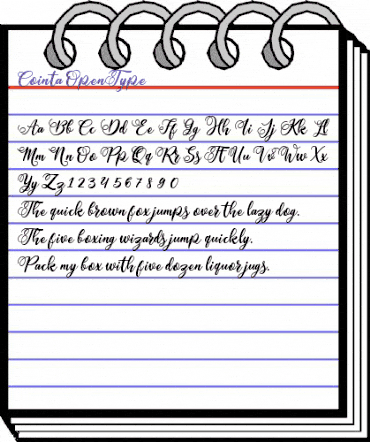 Cointa OpenType
Aa Bb Cc Dd Ee Ff Gg Hh Ii Jj Kk Ll
Mm Nn Oo Pp Qq Rr Ss Tt Uu Vv Ww Xx
Yy Zz 1 2 3 4 5 6 7 8 9 0
The quick brown fox jumps over the lazy dog.
The five boxing wizards jump quickly.
Pack my box with five dozen liquor jugs.